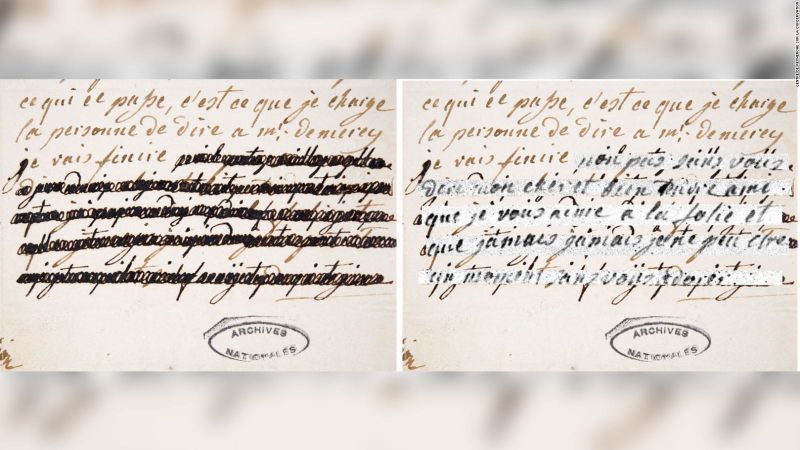 ce qui ce passe, c'est ce que je charge
la personne de dire a mr. demercy
je vais finire
ARCHIVES
NATIONALES
ce qui ce passe, c'est ce que je charge
la personne de dire a mr. demercy
je vais finire non pas sans vous
dire mon cher et bien tendre ami
que je vous aime à la folie et
que jamais jamais je ne peu être
un moment sans vous adorer
ARCHIVES
NATIONALES